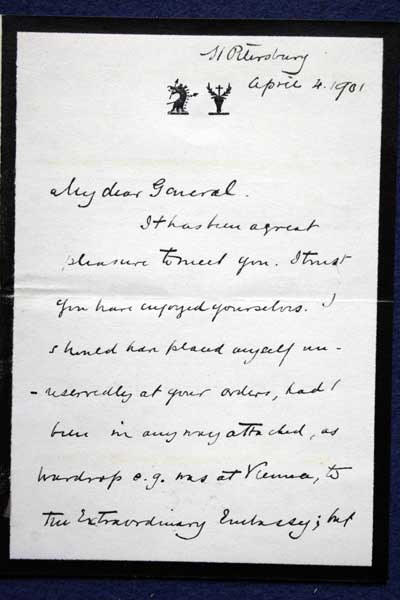 St Petersburg
April 4. 1901
My dear General.
It has been a great
pleasure to meet you. I trust
you have enjoyed yourselves. I
should have placed myself un-
-reservedly at your orders, had I
been in any way attached, as
Wardrop e.g. was at Vienna, to
the Extraordinary Embassy; but